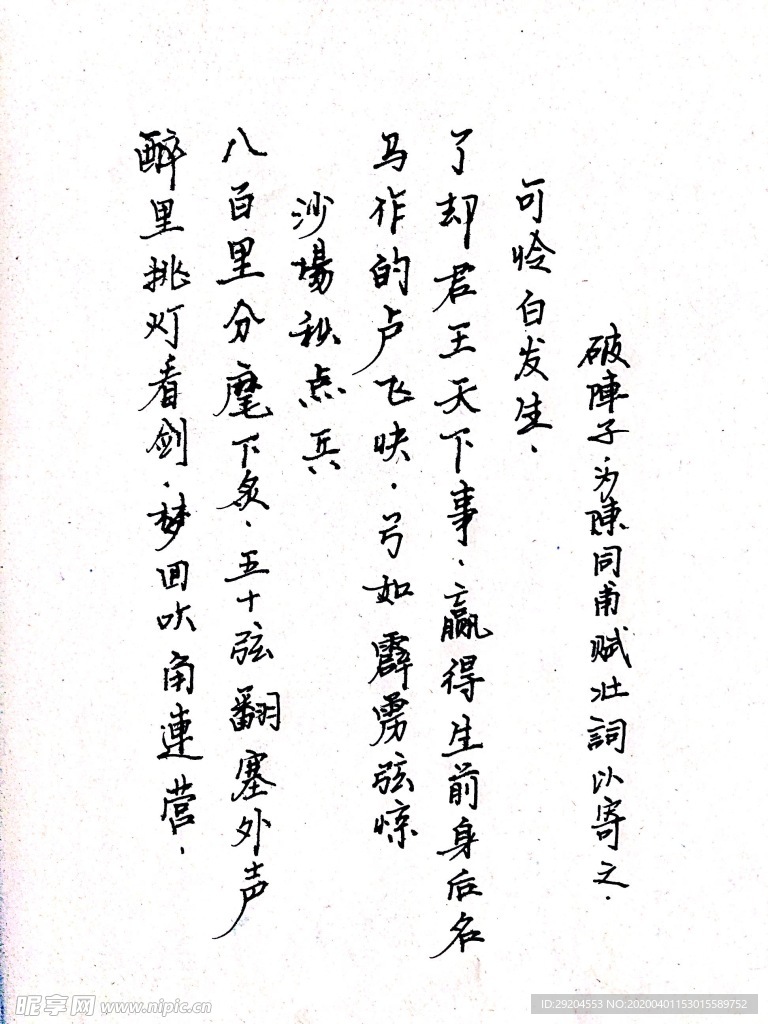 醉里挑灯看剑．梦回吹角連营．
八百里分麾下炙．五十弦翻塞外声
沙場秋点兵
马作的卢飞快．弓如霹雳弦惊
了却君王天下事．赢得生前身后名
可怜白发生．
破陣子．为陳同甫赋壮詞以寄之．
昵享网 www.nipic.cn
ID:29204553 NO:20200401153015589752